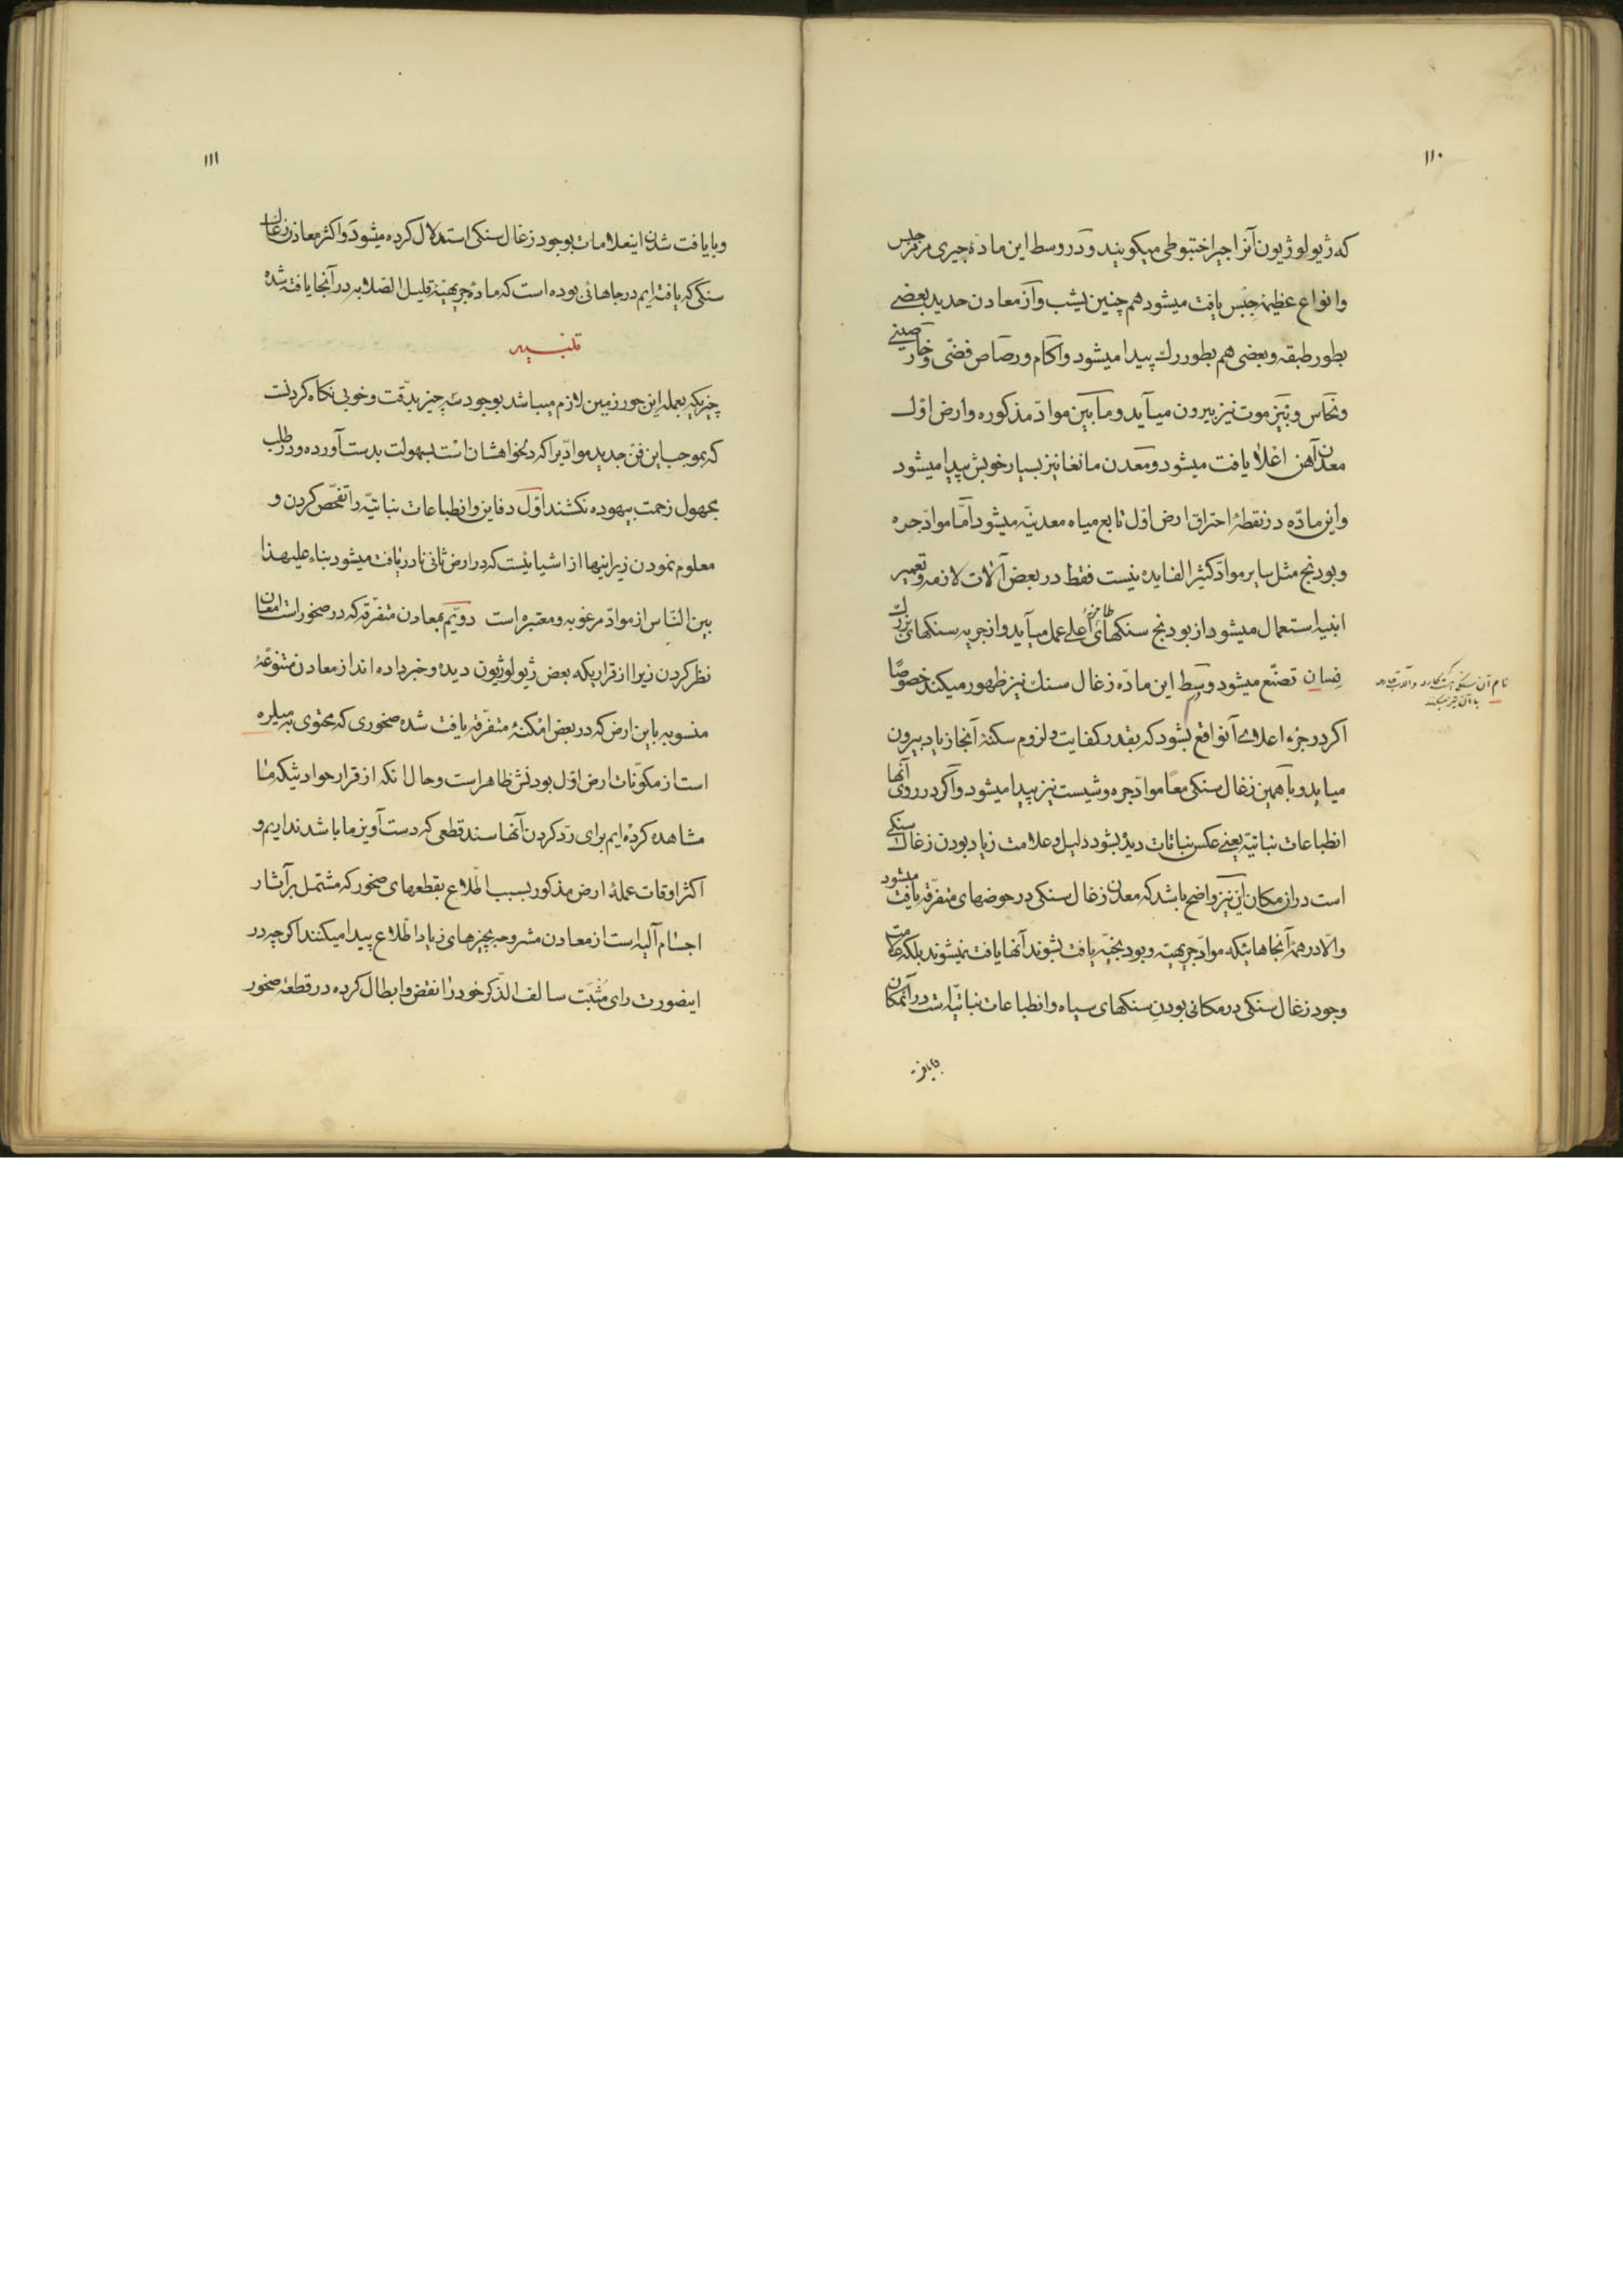 ۱۱۰
که ژیولوژیون آنرا جیراختبوطی میکویند و در وسط این مادۀ جیری مرمر جلس
و انواع عظیمۀ جبس یافت میشود هم چنین یشب و از معادن حدید بعضے
بطور طبقه و بعضی هم بطور رك پیدا میشود و اکام و رصاص فضّی و خارصینے
و نحاس و بَیزموت نیز بیرون میآید و مابین موادّ مذکوره و ارض اوّل
معدن آهن اغلا یافت میشود و معدن مانغانیز بسیار خوبش پیدا میشود
و این مادّه در نقطۀ احتراق ارض اوّل تابع میاه معدنیّه میشود امّا موادّ جره
و بودنج مثل سایر موادّ کثیر الفایده نیست فقط در بعض آلات لازمه و تعمیر
ابنیه استعمال میشود از بودنج سنکهای طاحونۀ اعلے عمل میآید و از جریه سنکهای بزرك
فِسان تصنّع میشود وسط این مادّه زغال سنك نیز ظهور میکند خصوصًا
نام آن سنکی است که کارد و آلات قاطعه
با آن تیز میکنند
اکر در جزء اعلاے آن واقع بشود که بقدر کفایت و لزوم سکنۀ آنجا زیاد بیرون
میاید و با همین زغال سنکی معًا موادّ جره و شیست نیز پیدا میشود و اکر در روی آنها
انطباعات نباتیّه یعنے عکس نباتات دیده بشود دلیل و علامت زیاد بودن زغال سنکی
است در آن مکان این نیز واضح باشد که معدن زغال سنکی در حوضهای متفرّقه یافت میشود
و الّا در همۀ آنجاهائیکه موادّ جریهیّه و بودنجیّه یافت بشوند آنها یافت نمیشوند بلکه علامت
وجود زغال سنکی در مکانی بودنِ سنکهای سیاه و انطباعات نباتیّه است در آنمکان
با یافت
۱۱۱
و با یافت شدن اینعلامات بوجود زغال سنکی استدلال کرده میشود و اکثر معادن زغال
سنکی که یافته ایم در جاهائی بوده است که مادۀ جریهیّۀ قلیل الصّلابه در آنجا یافته شده
تنبیـــه
چیزیکه بعملۀ این جور زمین لازم میباشد بوجود سه چیز بدقّت و خوبی نکاه کردنست
که بموجب این فنّ جدید موادّیرا که دلخواهشان است بسهولت بدست آورده و در طلب
مجهول زحمت بیهوده نکشند اوّل دفاین و انطباعات نباتیّه را تفحّص کردن و
معلوم نمودن زیرا اینها از اشیائیست که در ارض ثانی نادر یافت میشود بناء علیهذا
بین النّاس از موادّ مرغوبه و معتبره است دویّم بمعادن متفرّقه که در صخور است امعان
نظر کردن زیرا از قراریکه بعض ژیولوژیون دیده و خبر داده اند از معادن متنوّعۀ
منسوبه باین ارض که در بعض امکنۀ متفرّقه یافت شده صخوری که محتوی به میلره
است از مکوّنات ارض اوّل بودنش ظاهر است و حال انکه از قرار حوادثیکه ما
مشاهده کرده ایم برای ردّ کردن آنها سند قطعی که دست آویز ما باشد نداریم و
اکثر اوقات عملۀ ارض مذکور بسبب اطّلاع بقطعهای صخور که مشتمل بر آثار
اجسام آلیه است از معادن مشروحه بچیزهای زیاد اطّلاع پیدا میکنند اکرچه در
اینصورت رای مُثبَت سالف الذّکر خود را نقض و ابطال کرده در قطعۀ صخور